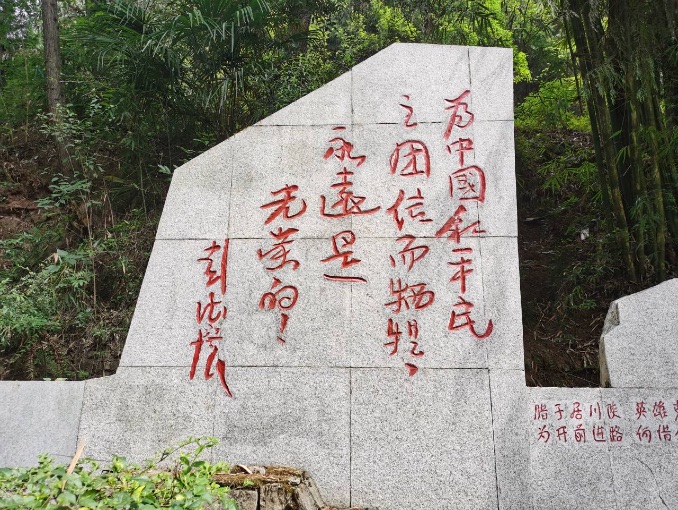 为中國和平民
主团结而牺牲、
永远是
光荣的！
彭德怀
腊子居川陕 英雄
为开前进路 何惜